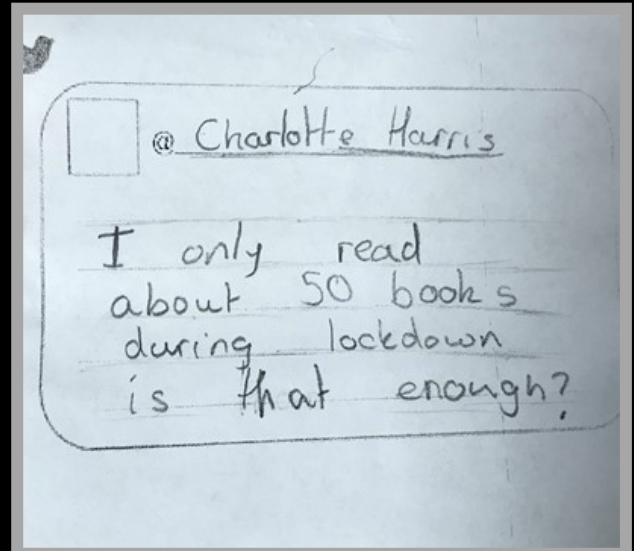 @ Charlotte Harris
I only read
about 50 books
during lockdown
is that enough?